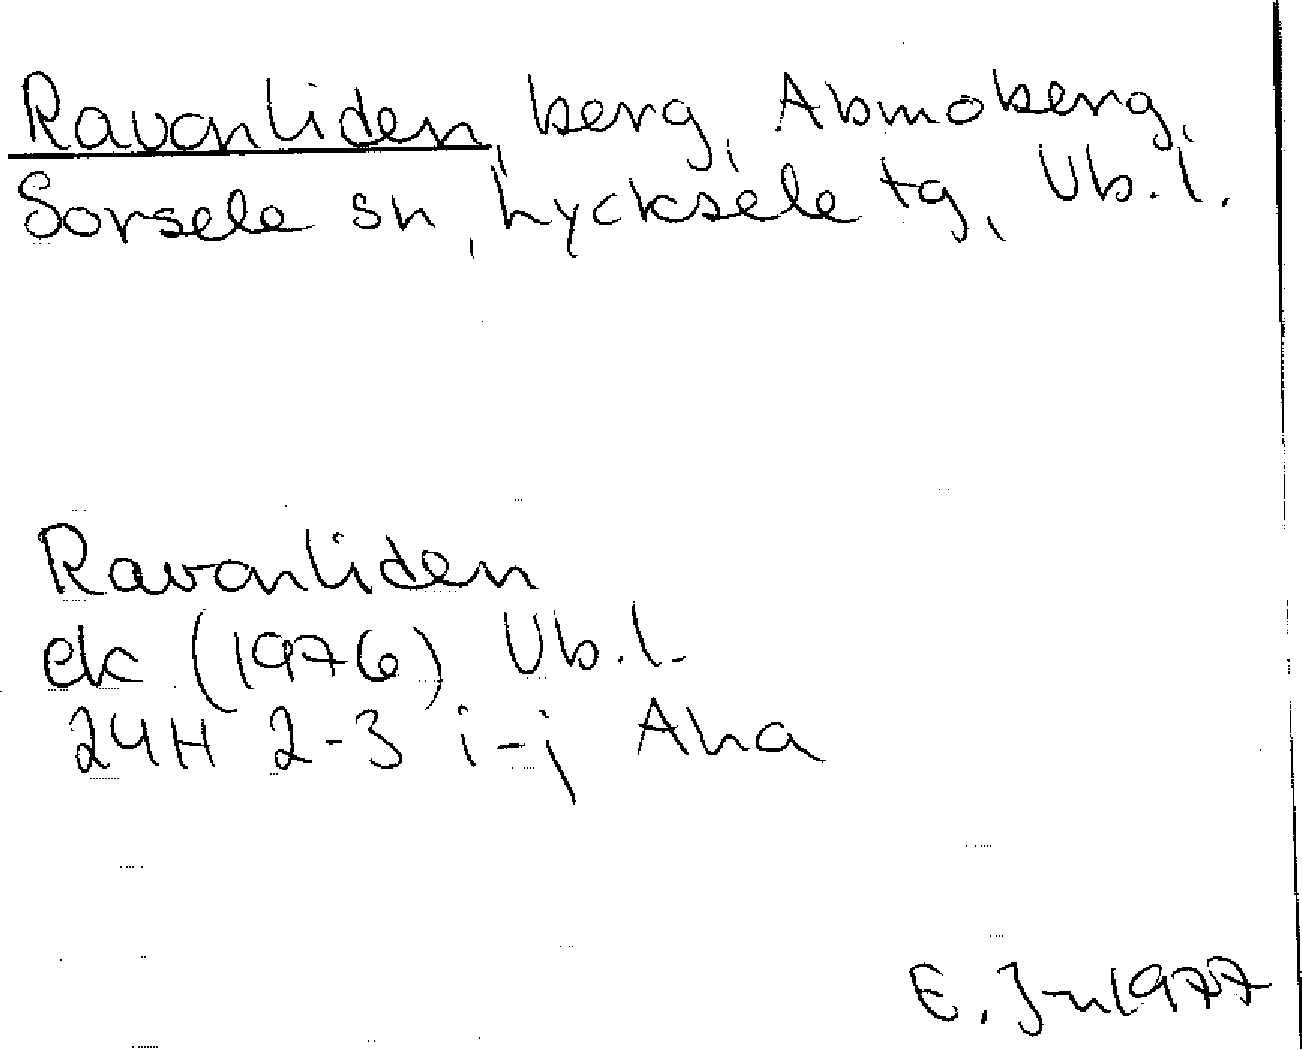 Ravonliden, berg, Abmoberg,
Sorsele sn, Lycksele tg, Vb.l.
Ravonliden
ek (1976) Vb.l.
24H 2-3 i-j Aha
E. J-n 1977